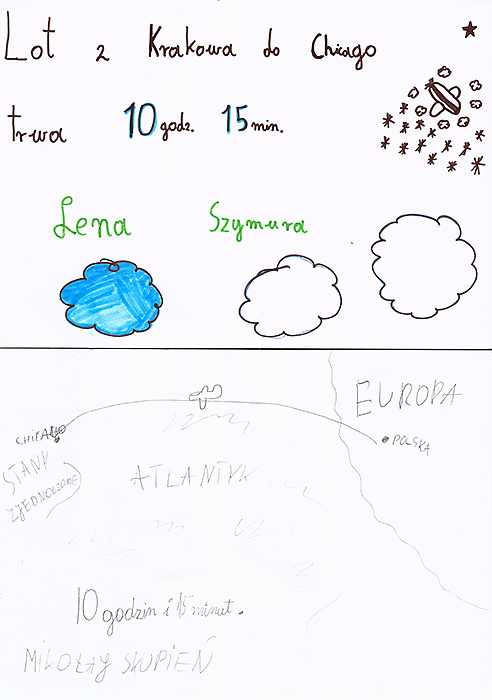 Lot z Krakowa do Chicago
trwa 10 godz. 15 min.
Lena Szymura
EUROPA
CHICAGO
POLSKA
STANY
ZJEDNOCZONE
ATLANTYK
10 godzin i 15 minut.
MIKOŁAJ SKUPIEŃ